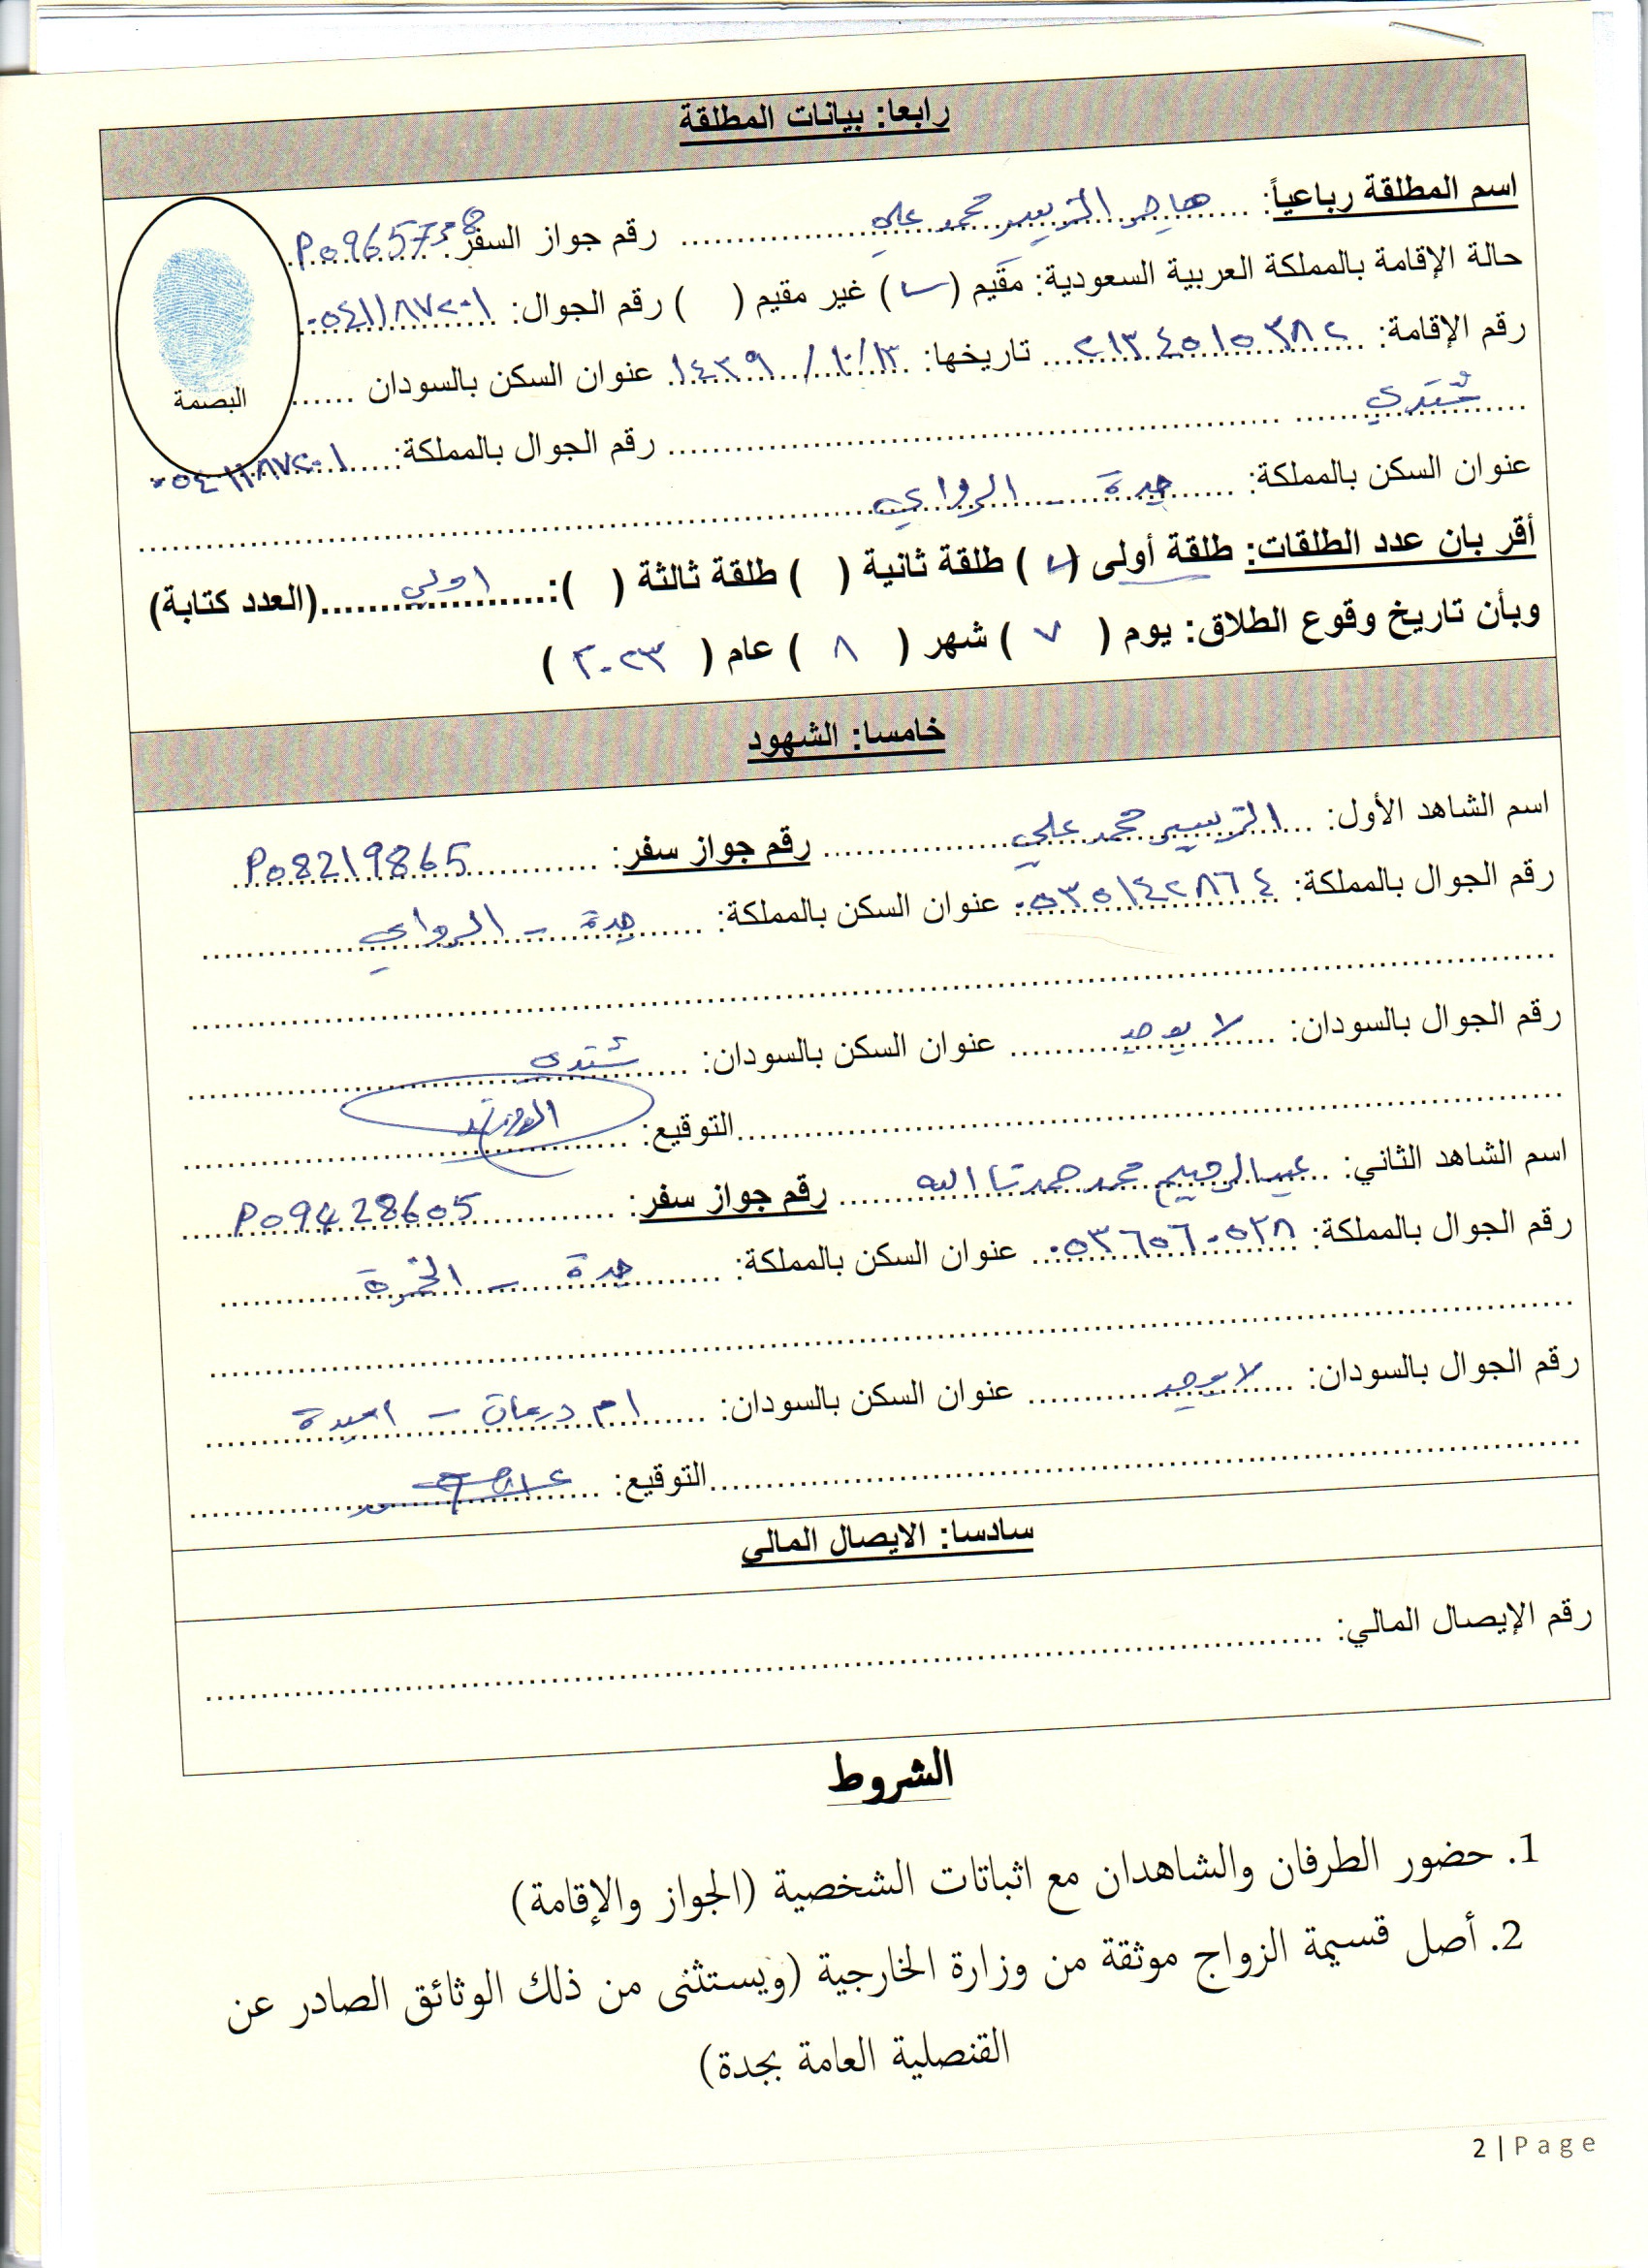 رابعا: بيانات المطلقة
اسم المطلقة رباعياً: هاجر الزبير محمد علي رقم جواز السفر: P09657
حالة الإقامة بالمملكة العربية السعودية: مقيم ( ) غير مقيم ( ) رقم الجوال: ٠٥٤١١٨٧٢٠١
رقم الإقامة: ٢١٣٤٥١٥٣٨٢ تاريخها: ١٤٣٩/١٠/١٣ عنوان السكن بالسودان
شندي
رقم الجوال بالمملكة: ٠٥٤١١٨٧٢٠١
البصمة
عنوان السكن بالمملكة: جدة - الروابي
أقر بان عدد الطلقات: طلقة أولى (✓) طلقة ثانية ( ) طلقة ثالثة ( ): اولى (العدد كتابة)
وبأن تاريخ وقوع الطلاق: يوم ( ٧ ) شهر ( ٨ ) عام ( ٢٠٢٣ )
خامسا: الشهود
اسم الشاهد الأول: الزبير محمد علي رقم جواز سفر: P08219865
رقم الجوال بالمملكة: ٠٥٣٥١٤٢٨٦٤ عنوان السكن بالمملكة: جدة - الروابي
رقم الجوال بالسودان: لا يوجد عنوان السكن بالسودان: شندي
التوقيع:
اسم الشاهد الثاني: عبدالرحيم محمد حمدتا الله رقم جواز سفر: P09428605
رقم الجوال بالمملكة: ٠٥٣٦٥٦٠٥٢٨ عنوان السكن بالمملكة: جدة - الخمرة
رقم الجوال بالسودان: لا يوجد عنوان السكن بالسودان: ام درمان - امبدة
التوقيع:
سادسا: الايصال المالي
رقم الإيصال المالي:
الشروط
1. حضور الطرفان والشاهدان مع اثباتات الشخصية (الجواز والإقامة)
2. أصل قسيمة الزواج موثقة من وزارة الخارجية (ويستثنى من ذلك الوثائق الصادر عن
القنصلية العامة بجدة)
2 | Page